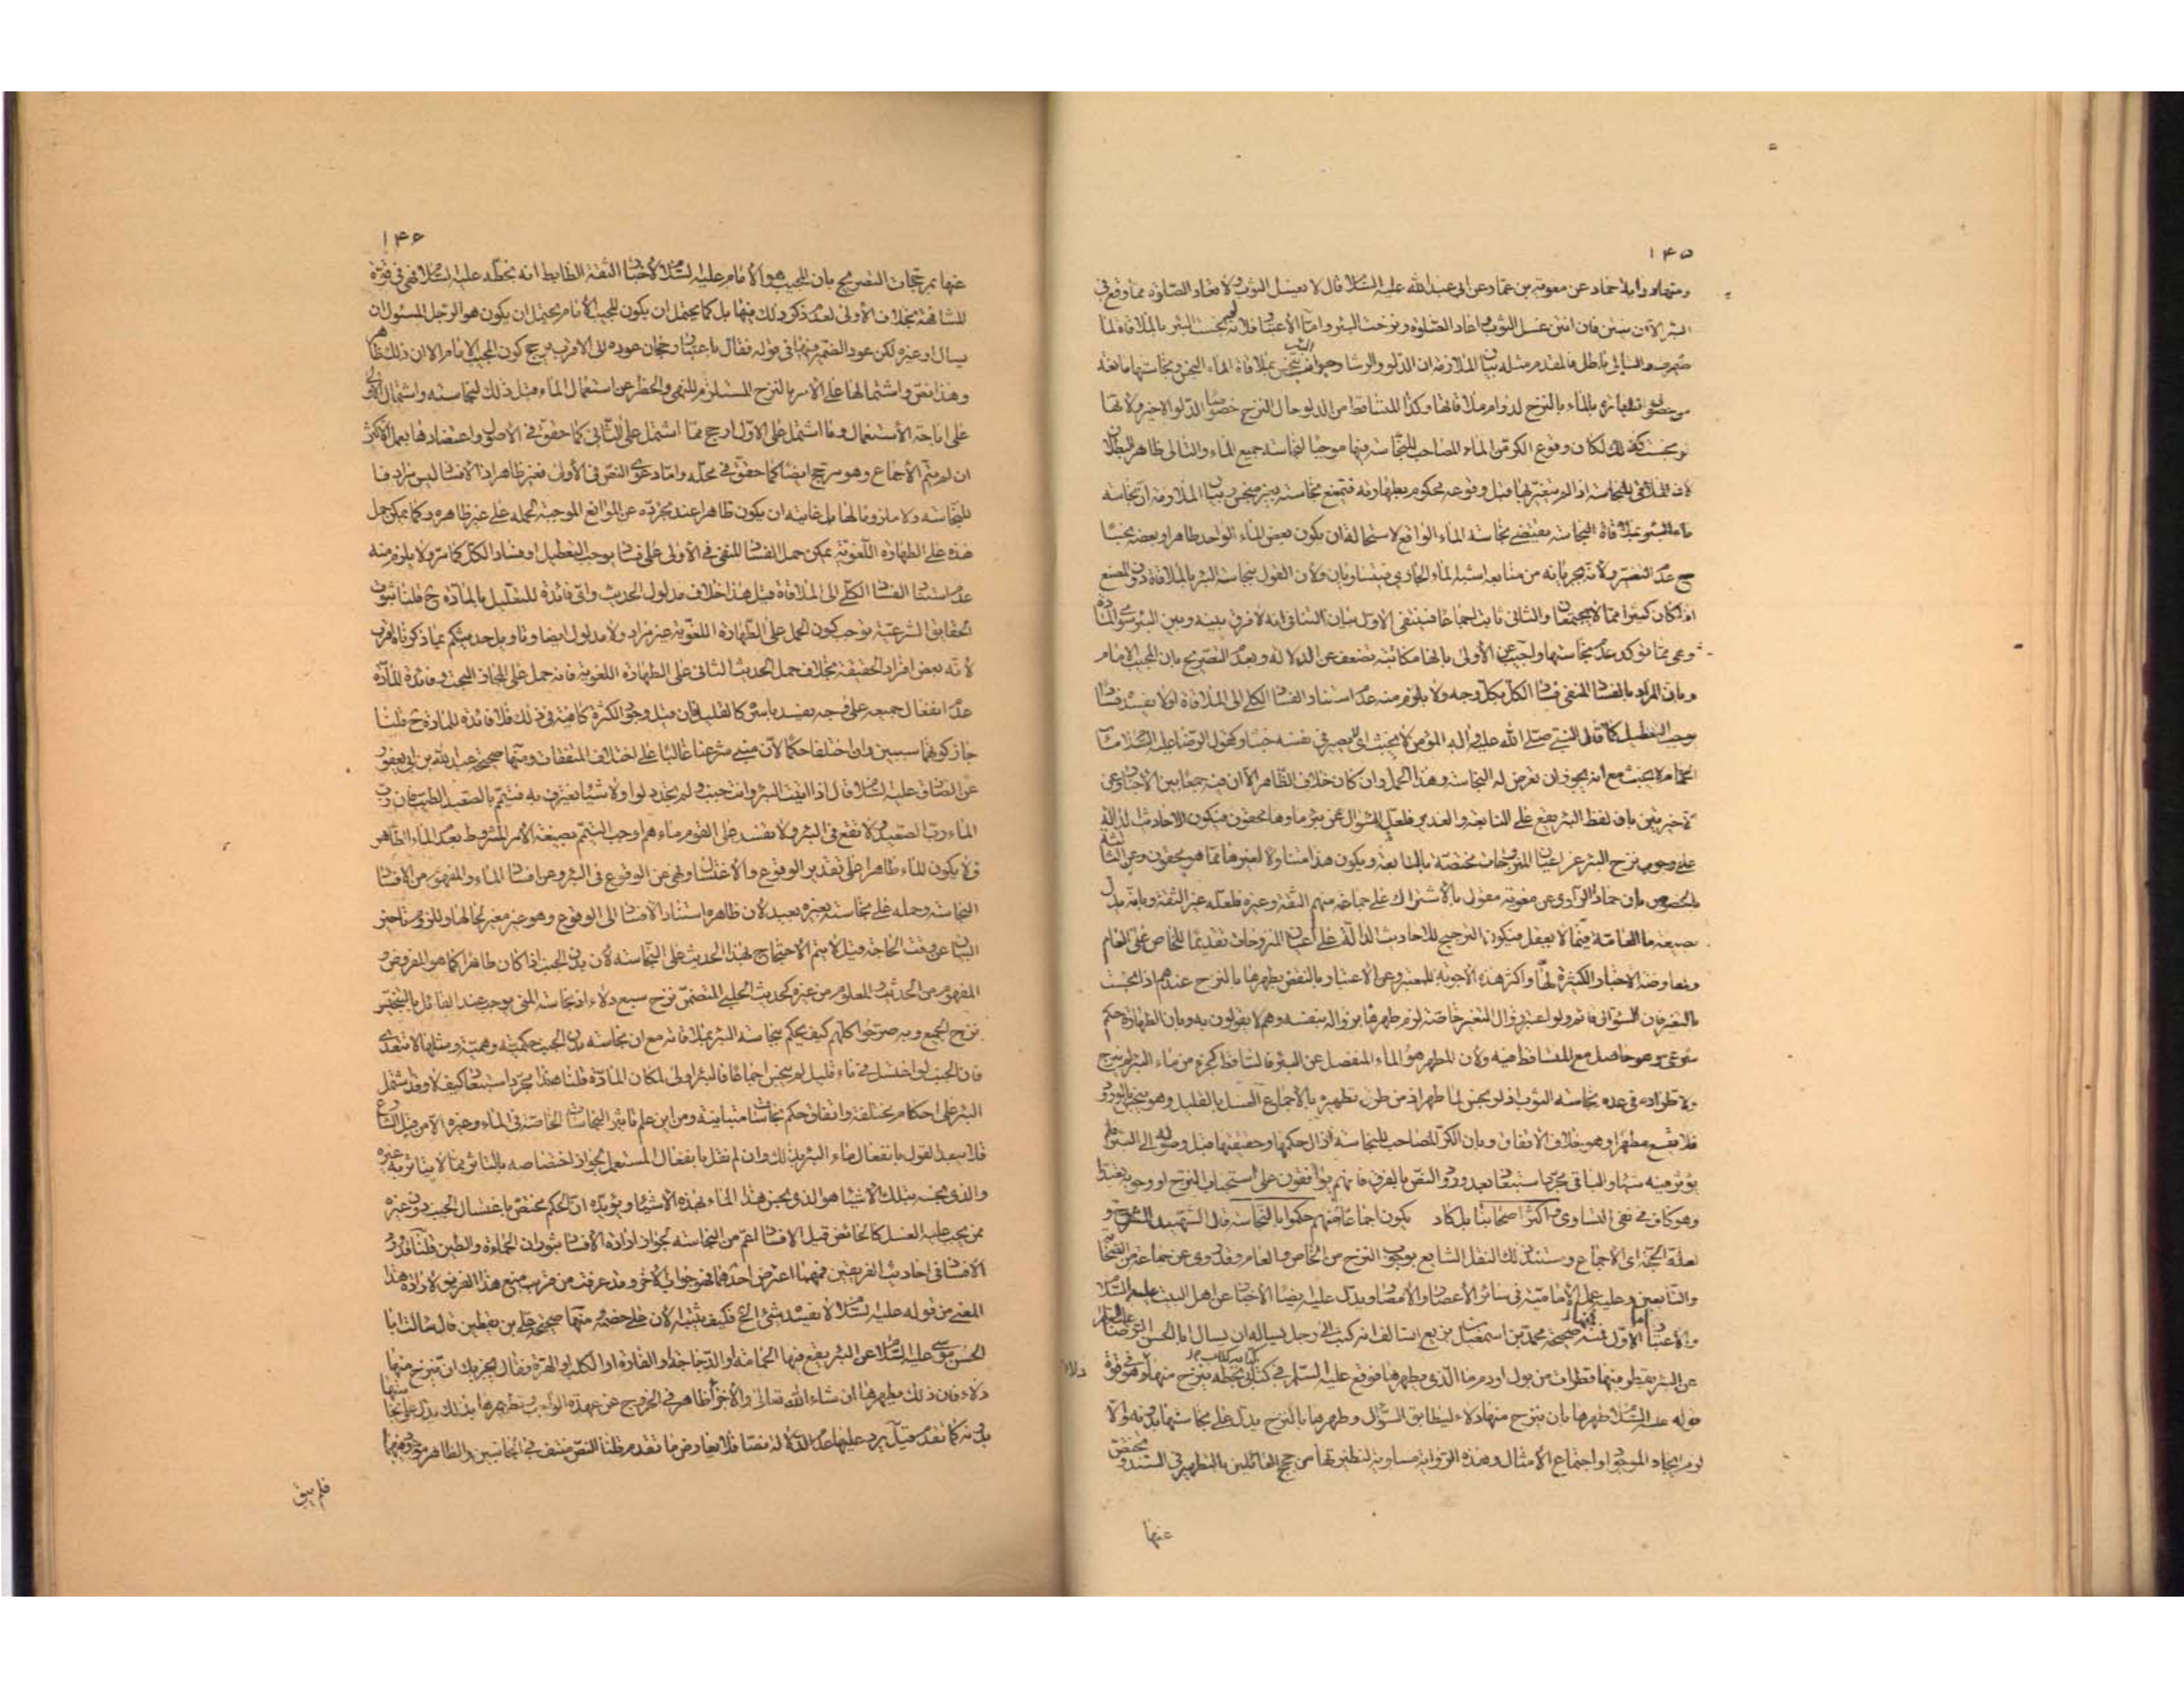 ١٤٥
ومنها رواية حماد عن معوية بن عمار عن ابى عبد الله عليه السلام قال لا يغسل الثوب ولا تعاد الصلوة مما وقع فى
البئر الا ان ينتن فان انتن غسل الثوب واعاد الصلوة ونزحت البئر واما الاعتبار فلانه لو نجست البئر بالملاقاة لما
طهرت والتالى باطل فالمقدم مثله بيان الملازمة ان الدلو والرشا وجوانب البئر ينجس بملاقاة الماء النجس ونجاستها مانعة
من حصول الطهارة بالماء بالنزح لدوام ملاقاتها وكذا المتساقط من الدلو حال النزح خصوصا الدلو الاخير ولانها
لو نجست كذلك لكان وقوع الكر من الماء المصاحب للنجاسة فيها موجبا لنجاسة جميع الماء والتالى ظاهر البطلان
لان الملاقى للنجاسة اذا لم يتغير بها قبل وقوعه محكوم بطهارته فتمتنع نجاسته بغير منجس وبيان الملازمة ان نجاسة
ماء البئر بملاقاة النجاسة يقتضى نجاسة الماء الواقع لاستحالة ان يكون بعض الماء الواحد طاهرا وبعضه نجسا
مع عدم التغير ولانه يجريانه من منابعه اشبه الماء الجارى فيتساويان ولان القول بنجاسة البئر بالملاقاة دون المصنع
اذا كان كثيرا مما لا يجتمعان والثانى ثابت اجماعا فينتفى الاول بيان التنافى انه لا فرق بينه وبين البئر سوى المادة
وهى مما يؤكد عدم نجاستها واجيب عن الاولى بانها مكاتبة تضعف عن الدلالة وبعدم التصريح بان المجيب الامام
وبان المراد بالفساد المنفى فساد الكل بكل وجه ولا يلزم منه عدم استناد الفساد الكلى الى الملاقاة او لا يفسد فسادا
يوجب التعطيل كما قال النبى صلى الله عليه واله المؤمن لا يخبث اى لا يصير فى نفسه خبثا وكقول الرضا عليه السلام ماء
الحمام لا يخبث مع انه يجوز ان تعرض له النجاسة وهذا الحمل وان كان خلاف الظاهر الا ان فيه جمعا بين الاخبار وعن
الاخيرتين بان لفظ البئر يقع على النابعة والغدير فلعل السؤال عن بئر ماؤها محقون فيكون الاحاديث الدالة
على وجوب نزح البئر عن اعيان المنزوحات مختصة بالنابعة ويكون هذا متناولا لغيرها مما هو محقون وعن الثالثة
بالخصوص بان حماد الراوى عن معوية مقول بالاشتراك على جماعة منهم الثقة وغيره فلعله غير الثقة وبانه يدل
بصيغة ما العامة فيما لا يعقل فيكون الترجيح للاحاديث الدالة على اعيان المنزوحات تقديما للخاص على العام
وبمعارضة الاخبار الكثيرة لها واكثر هذه الاجوبة للمعتبر وعن الاعتبار بالنقض بطهرها بالنزح عندهم اذا نجست
بالتغير فان السؤال قائم ولو اعتبر زوال التغير خاصة لزم طهرها بزواله بنفسه وهم لا يقولون به وبان الطهارة حكم
شرعى وهو حاصل مع المتساقط فيه ولان المطهر هو الماء المنفصل عن البئر فالمتساقط كجزء من ماء البئر لم ينزح
ولاطراده فى عدم نجاسة الثوب اذ لو نجس لما طهر اذ من طرق تطهيره بالاجماع الغسل بالقليل وهو ينجس بالورود
فلا يقع مطهرا وهو خلاف الاتفاق وبان الكر المصاحب للنجاسة زال حكمها وحقيقتها قبل وصوله الى البئر فلم
يؤثر فيه شيئا والباقى مجرد استبعاد بعد ورود النص بالفرق فانهم يوافقون على استحباب النزح او وجوبه تعبدا
وهو كاف فى نفى التساوى واكثر اصحابنا بل كاد يكون اجماعا منهم حكموا بالنجاسة قال الشهيد فى الشرح
لعله الحجة اى الاجماع ومستند ذلك النقل الشايع بوجوب النزح من الخاص والعام وقد روى عن جماعة من الصحابة
والتابعين وعليه عمل الامامية فى سائر الاعصار والامصار ويدل عليه ايضا الاخبار عن اهل البيت عليهم السلام
والاعتبار اما الاول فمنها صحيحة محمد بن اسمعيل بن بزيع السالفة انه كتب الى رجل يسأله ان يسأل ابا الحسن الرضا عليه السلام
عن البئر يقطر فيها قطرات من بول او دم ما الذى يطهرها فوقع عليه السلم فى كتابى بخطه ينزح منها دلاء وهو فى قوة
قوله عليه السلام طهرها بان ينزح منها دلاء ليطابق السؤال وطهرها بالنزح يدل على نجاستها بدونه والا
لزم ايجاد الموجود او اجتماع الامثال وهذه الرواية مساوية لنظيرتها من حجج القائلين بالتطهير فى السند ومختص
عنها
١٤٦
عنها بترجيحات التصريح بان المجيب هو الامام عليه السلام لاخبار الثقة الضابط انه بخطه عليه السلام فهى فى قوة
المشافهة بخلاف الاولى لعدم ذكر ذلك فيها بل كما يحتمل ان يكون المجيب الامام يحتمل ان يكون هو الرجل المسئول ان
يسأل او غيره لكن عود الضمير فيها فى قوله فقال باعتبار رجحان عوده الى الاقرب يرجح كون المجيب الامام الا ان ذلك ظاهر
وهذا نص واشتمالها على الامر بالنزح المستلزم للنهى والحظر عن استعمال الماء قبل ذلك لنجاسته واشتمال الاولى
على اباحة الاستعمال وما اشتمل على الاول ارجح مما اشتمل على الثانى كما حقق فى الاصول واعتضادها بعمل الاكثر
ان لم يتم الاجماع وهو مرجح ايضا كما حقق فى محله واما دعوى النص فى الاولى فغير ظاهر اذ الافساد ليس مرادفا
للنجاسة ولا ملزوما لها بل غايته ان يكون ظاهرا عند تجرده عن الموانع الموجبة لحمله على غير ظاهره وكما يمكن حمل
هذه على الطهارة اللغوية يمكن حمل الفساد المنفى فى الاولى على فساد يوجب التعطيل او فساد الكل كما مر ولا يلزم منه
عدم استناد الفساد الكلى الى الملاقاة قيل هذا خلاف مدلول الحديث واى فائدة للتعليل بالمادة ح قلنا ثبوت
الحقايق الشرعية يوجب كون الحمل على الطهارة اللغوية غير مراد ولا مدلول ايضا وتاويل حديثكم بما ذكرناه اقرب
لانه بعض افراد الحقيقة بخلاف حمل الحديث الثانى على الطهارة اللغوية فانه حمل على المجاز البحت وفائدة المادة
عدم انفعال جميعه على وجه يفسد باسره كالقليل فان قيل وجود الكثرة كافية فى ذلك فلا فائدة للمادة ح قلنا
جاز كونهما سببين وان اختلفا حكما لان مبنى شرعنا غالبا على اختلاف المتفقات ومنها صحيحة عبد الله بن ابى يعفور
عن الصادق عليه السلام قال اذا اتيت البئر وانت جنب ولم تجد دلوا ولا شيئا يغترف به فتيمم بالصعيد الطيب فان رب
الماء رب الصعيد ولا تقع فى البئر ولا تفسد على القوم ماءهم اوجب التيمم بصيغة الامر المشروط بعدم الماء الطاهر
ولا يكون الماء طاهرا على تقدير الوقوع والاغتسال ونهى عن الوقوع فى البئر وعن افساد الماء والمفهوم من الافساد
النجاسة وحمله على نجاسته بغيره بعيد لان ظاهره استناد الافساد الى الوقوع وهو غير مغير لحالها وللزوم تاخير
البيان عن وقت الحاجة قيل لا يتم الاحتجاج بهذا الحديث على النجاسة لان بدن الجنب اذا كان طاهرا كما هو المفروض و
المفهوم من الحديث والمعلوم من غيره كحديث الحلبى المتضمن نزح سبع دلاء اذ نجاسة المنى يوجب عند القائل بالتنجيس
نزح الجميع وبه صرحوا كلهم كيف يحكم بنجاسة البئر بملاقاته مع ان نجاسة بدن الجنب حكمية وهمية ومثلها لا تتعدى
فان الجنب لو اغتسل فى ماء قليل لم ينجس اجماعا فالبئر اولى لمكان المادة قلنا هذا مجرد استبعاد كيف لا وقد اشتمل
البئر على احكام مختلفة واتفاق حكم نجاسات متباينة ومن اين علم تاثير النجاسات الخاصة فى الماء وغيره الا من قبل الشارع
فلا يبعد القول بانفعال ماء البئر بذلك وان لم نقل بانفعال المستعمل لجواز اختصاصه بالتاثر بما لا يتاثر به غيره
والذى نجسه بتلك الاشياء هو الذى نجس هذا الماء بهذه الاشياء ويؤيده ان الحكم مختص باغتسال الجنب دون غيره
ممن يجب عليه الغسل كالحائض قيل الافساد اعم من النجاسة لجواز ارادة الافساد بثوران الحماءة والطين قلنا قد ورد
الافساد فى احاديث الفريقين فمهما اعترض احدهما فهو جواب الاخر وقد عرفت من قرب منع هذا الفريق لارادة هذا
المعنى من قوله عليه السلام لا يفسده شئ الخ فكيف يثبته الان على خصمه ومنها صحيحة على بن يقطين قال سالت ابا
الحسن موسى عليه السلام عن البئر يقع فيها الحمامة او الدجاجة او الفارة او الكلب او الهرة فقال يجزيك ان تنزح منها
دلاء فان ذلك يطهرها ان شاء الله تعالى والاجزاء ظاهر فى الخروج عن عهدة الواجب وتطهيرها بذلك يدل على نجاستها
بدونه كما تقدم قيل يرد عليها عدم الدلالة نصا فلا يعارض ما تقدم قلنا النص منتف فى الجانبين والظاهر موجود فيهما
فلم يبق